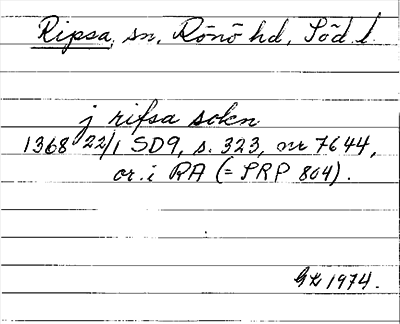 Ripsa, sn, Rönö hd, Söd l.
j rifsa sokn
1368 22/1 SD9, s. 323, nr 7644,
or. i RA (= SRP 804).
1974.